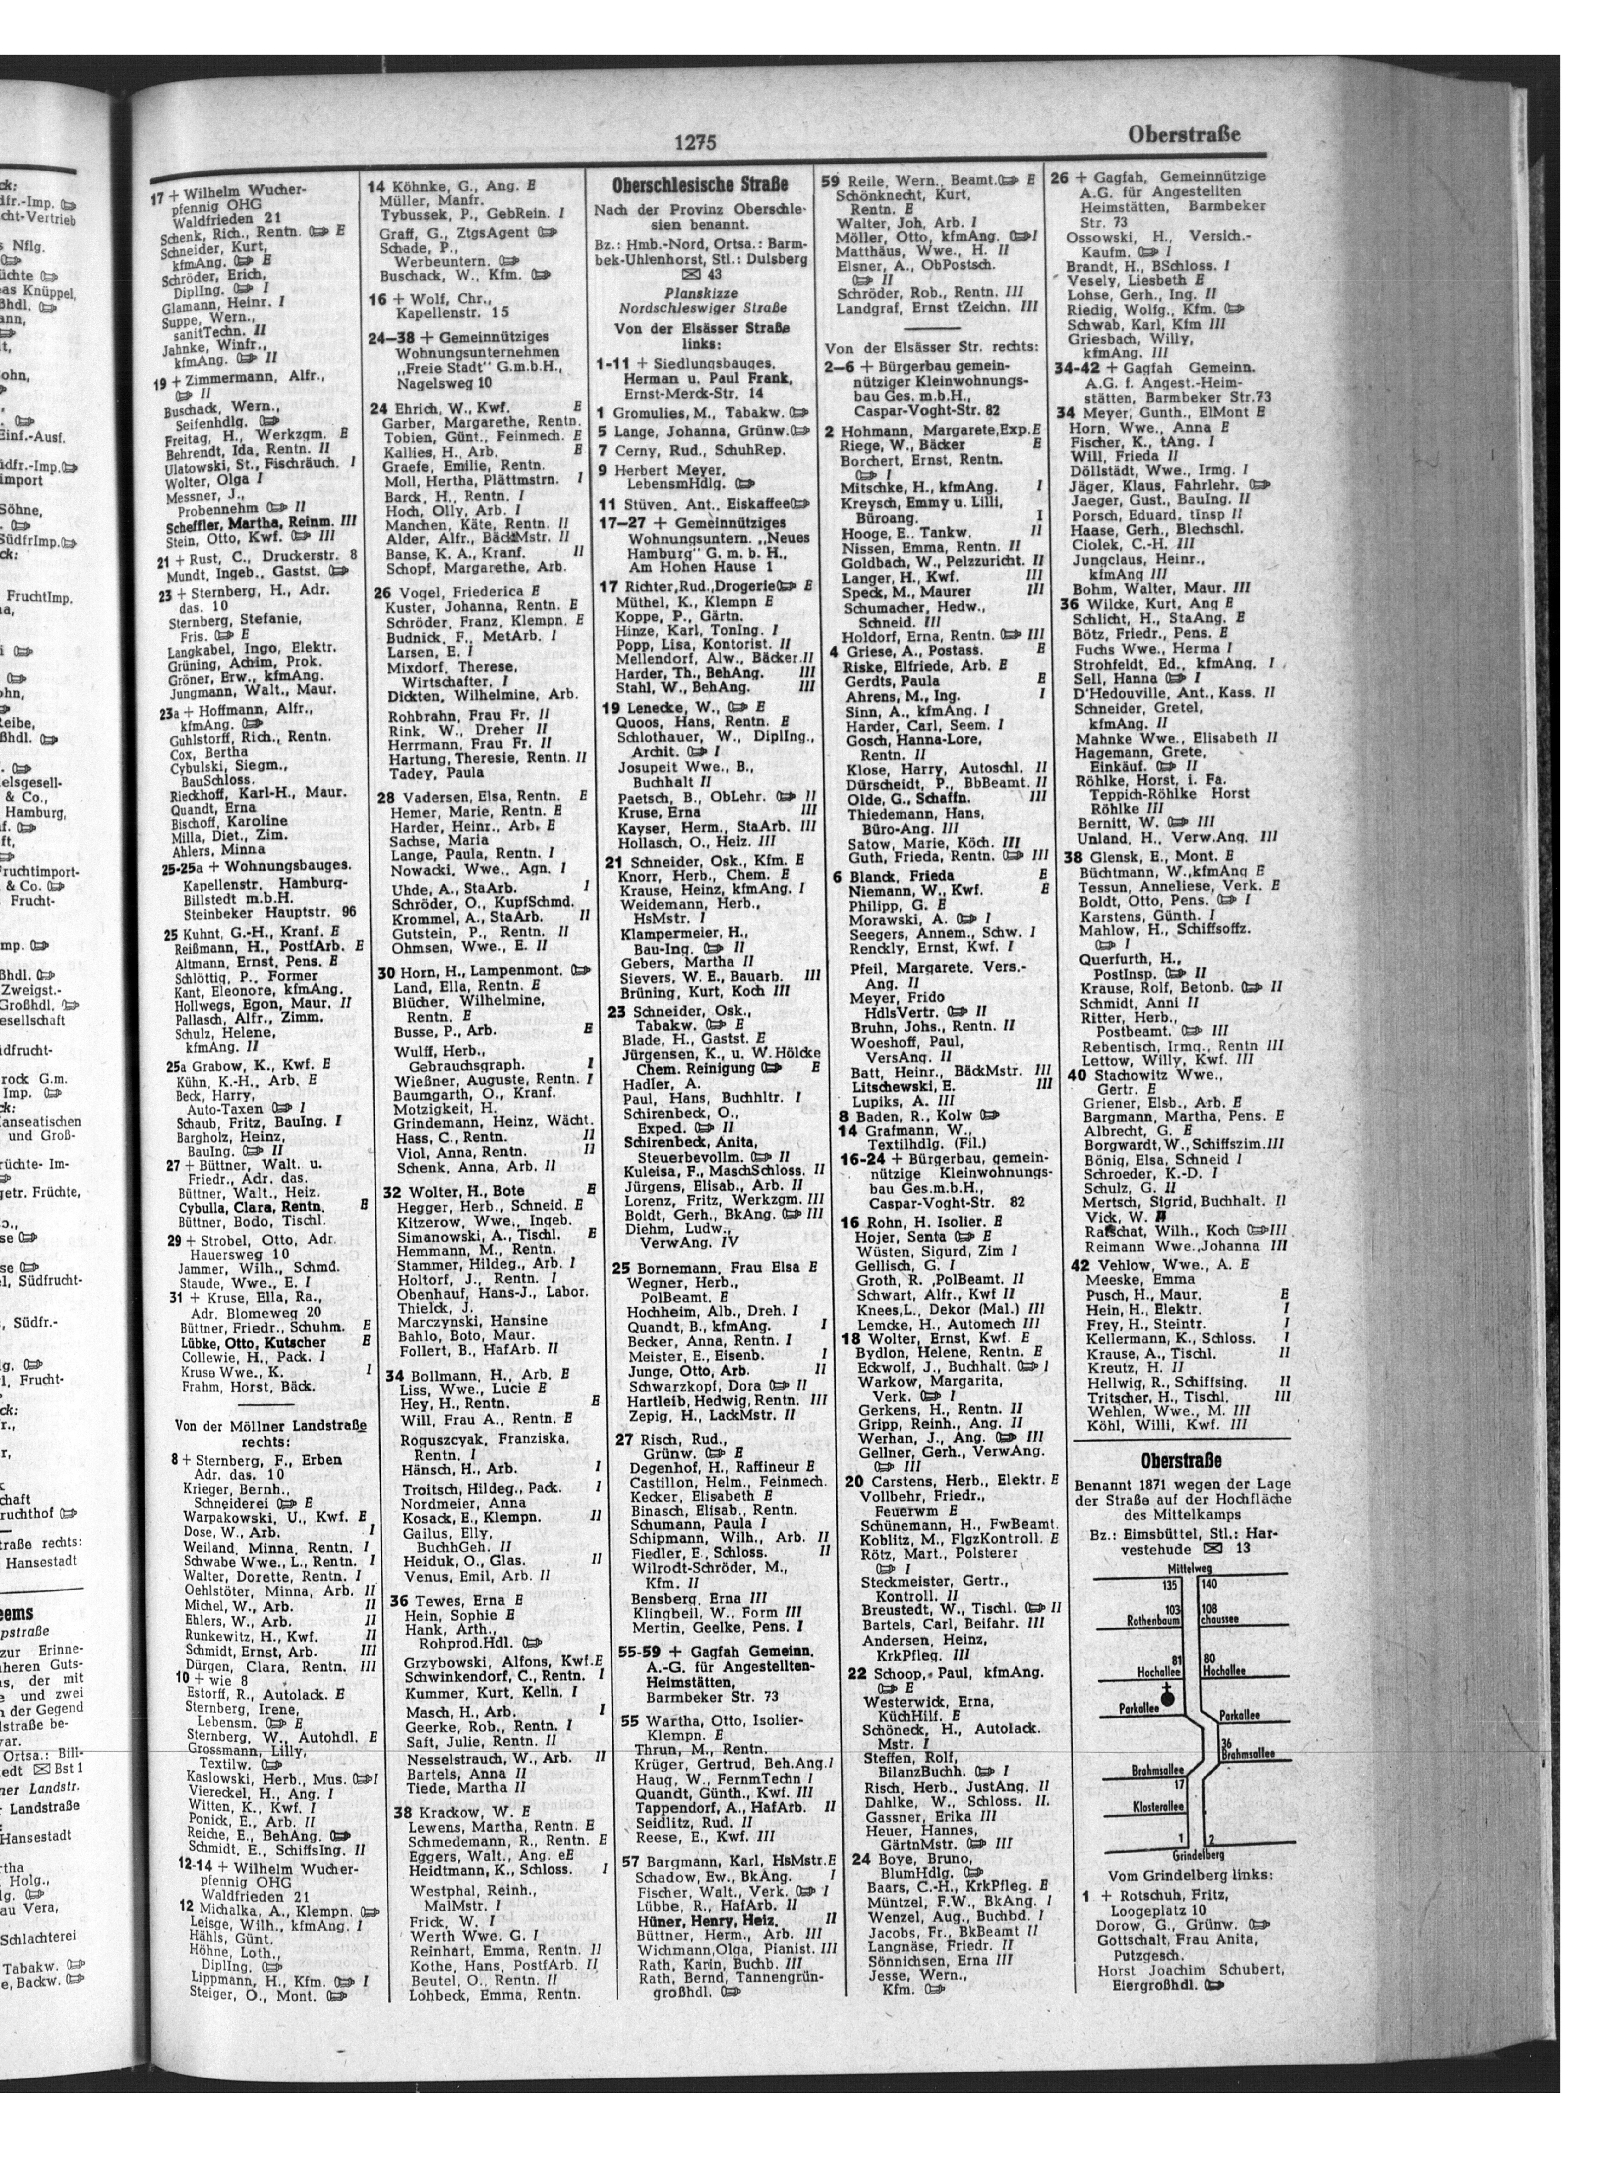 1275
Oberstraße
17 + Wilhelm Wucher-
pfennig OHG
Waldfrieden 21
Schenk, Rich., Rentn. E
Schneider, Kurt,
kfmAng. E
Schröder, Erich,
DiplIng. I
Glamann, Heinr. I
Suppe, Wern.,
sanitTechn. II
Jahnke, Winfr.,
kfmAng. II
19 + Zimmermann, Alfr.,
II
Buschack, Wern.,
Seifenhdlg.
Freitag, H., Werkzgm. E
Behrendt, Ida, Rentn. II
Ulatowski, St., Fischräuch. I
Wolter, Olga I
Messner, J.,
Probennehm II
Scheffler, Martha, Reinm. III
Stein, Otto, Kwf. III
21 + Rust, C., Druckerstr. 8
Mundt, Ingeb., Gastst.
23 + Sternberg, H., Adr.
das. 10
Sternberg, Stefanie,
Fris. E
Langkabel, Ingo, Elektr.
Grüning, Achim, Prok.
Gröner, Erw., kfmAng.
Jungmann, Walt., Maur.
23a + Hoffmann, Alfr.,
kfmAng.
Guhlstorff, Rich., Rentn.
Cox, Bertha
Cybulski, Siegm.,
BauSchloss.
Rieckhoff, Karl-H., Maur.
Quandt, Erna
Bischoff, Karoline
Milla, Diet., Zim.
Ahlers, Minna
25-25a + Wohnungsbauges.
Kapellenstr. Hamburg-
Billstedt m.b.H.
Steinbeker Hauptstr. 96
25 Kuhnt, G.-H., Kranf. E
Reißmann, H., PostfArb. E
Altmann, Ernst, Pens. E
Schlöttig, P., Former
Kant, Eleonore, kfmAng.
Hollwegs, Egon, Maur. II
Pallasch, Alfr., Zimm.
Schulz, Helene,
kfmAng. II
25a Grabow, K., Kwf. E
Kühn, K.-H., Arb. E
Beck, Harry,
Auto-Taxen I
Schaub, Fritz, BauIng. I
Bargholz, Heinz,
BauIng. II
27 + Büttner, Walt. u.
Friedr., Adr. das.
Büttner, Walt., Heiz.
Cybulla, Clara, Rentn. E
Büttner, Bodo, Tischl.
29 + Strobel, Otto, Adr.
Hauersweg 10
Jammer, Wilh., Schmd.
Staude, Wwe., E. I
31 + Kruse, Ella, Ra.,
Adr. Blomeweg 20
Büttner, Friedr., Schuhm. E
Lübke, Otto, Kutscher E
Collewie, H., Pack. I
Kruse Wwe., K. I
Frahm, Horst, Bäck.
Von der Möllner Landstraße
rechts:
8 + Sternberg, F., Erben
Adr. das. 10
Krieger, Bernh.,
Schneiderei E
Warpakowski, U., Kwf. E
Dose, W., Arb. I
Weiland, Minna, Rentn. I
Schwabe Wwe., L., Rentn. I
Walter, Dorette, Rentn. I
Oehlstöter, Minna, Arb. II
Michel, W., Arb. II
Ehlers, W., Arb. II
Runkewitz, H., Kwf. II
Schmidt, Ernst, Arb. III
Dürgen, Clara, Rentn. III
10 + wie 8
Estorff, R., Autolack. E
Sternberg, Irene,
Lebensm. E
Sternberg, W., Autohdl. E
Grossmann, Lilly,
Textilw.
Kaslowski, Herb., Mus. I
Viereckel, H., Ang. I
Witten, K., Kwf. I
Ponick, E., Arb. II
Reiche, E., BehAng.
Schmidt, E., SchiffsIng. II
12-14 + Wilhelm Wucher-
pfennig OHG
Waldfrieden 21
12 Michalka, A., Klempn.
Leisge, Wilh., kfmAng. I
Hähls, Günt.
Höhne, Loth.,
DiplIng.
Lippmann, H., Kfm. I
Steiger, O., Mont.
14 Köhnke, G., Ang. E
Müller, Manfr.
Tybussek, P., GebRein. I
Graff, G., ZtgsAgent
Schade, P.,
Werbeuntern.
Buschack, W., Kfm.
16 + Wolf, Chr.,
Kapellenstr. 15
24—38 + Gemeinnütziges
Wohnungsunternehmen
„Freie Stadt" G.m.b.H.,
Nagelsweg 10
24 Ehrich, W., Kwf. E
Garber, Margarethe, Rentn.
Tobien, Günt., Feinmech. E
Kallies, H., Arb. E
Graefe, Emilie, Rentn.
Moll, Hertha, Plättmstrn. I
Barck, H., Rentn. I
Hoch, Olly, Arb. I
Manchen, Käte, Rentn. II
Alder, Alfr., BäckMstr. II
Banse, K. A., Kranf. II
Schopf, Margarethe, Arb.
26 Vogel, Friederica E
Kuster, Johanna, Rentn. E
Schröder, Franz, Klempn. E
Budnick, F., MetArb. I
Larsen, E. I
Mixdorf, Therese,
Wirtschafter. I
Dickten, Wilhelmine, Arb.
Rohbrahn, Frau Fr. II
Rink, W., Dreher II
Herrmann, Frau Fr. II
Hartung, Theresie, Rentn. II
Tadey, Paula
28 Vadersen, Elsa, Rentn. E
Hemer, Marie, Rentn. E
Harder, Heinr., Arb. E
Sachse, Maria
Lange, Paula, Rentn. I
Nowacki, Wwe., Agn. I
Uhde, A., StaArb. I
Schröder, O., KupfSchmd.
Krommel, A., StaArb. II
Gutstein, P., Rentn. II
Ohmsen, Wwe., E. II
30 Horn, H., Lampenmont.
Land, Ella, Rentn. E
Blücher, Wilhelmine,
Rentn. E
Busse, P., Arb. E
Wulff, Herb.,
Gebrauchsgraph. I
Wießner, Auguste, Rentn. I
Baumgarth, O., Kranf.
Motzigkeit, H.
Grindemann, Heinz, Wächt.
Hass, C., Rentn. II
Viol, Anna, Rentn. II
Schenk, Anna, Arb. II
32 Wolter, H., Bote E
Hegger, Herb., Schneid. E
Kitzerow, Wwe., Ingeb.
Simanowski, A., Tischl. E
Hemmann, M., Rentn.
Stammer, Hildeg., Arb. I
Holtorf, J., Rentn. I
Obenhauf, Hans-J., Labor.
Thielck, J.
Marczynski, Hansine
Bahlo, Boto, Maur.
Follert, B., HafArb. II
34 Bollmann, H., Arb. E
Liss, Wwe., Lucie E
Hey, H., Rentn. E
Will, Frau A., Rentn. E
Roguszcyak, Franziska,
Rentn. I
Hänsch, H., Arb. I
Troitsch, Hildeg., Pack. I
Nordmeier, Anna
Kosack, E., Klempn. II
Gailus, Elly,
BuchhGeh. II
Heiduk, O., Glas. II
Venus, Emil, Arb. II
36 Tewes, Erna E
Hein, Sophie E
Hank, Arth.,
Rohprod.Hdl.
Grzybowski, Alfons, Kwf. E
Schwinkendorf, C., Rentn. I
Kummer, Kurt, Kelln. I
Masch, H., Arb. I
Geerke, Rob., Rentn. I
Saft, Julie, Rentn. II
Nesselstrauch, W., Arb. II
Bartels, Anna II
Tiede, Martha II
38 Krackow, W. E
Lewens, Martha, Rentn. E
Schmedemann, R., Rentn. E
Eggers, Walt., Ang. eE
Heidtmann, K., Schloss. I
Westphal, Reinh.,
MalMstr. I
Frick, W. I
Werth Wwe. G. I
Reinhart, Emma, Rentn. II
Kothe, Hans, PostfArb. II
Beutel, O., Rentn. II
Lohbeck, Emma, Rentn.
Oberschlesische Straße
Nach der Provinz Oberschle-
sien benannt.
Bz.: Hmb.-Nord, Ortsa.: Barm-
bek-Uhlenhorst, Stl.: Dulsberg
43
Planskizze
Nordschleswiger Straße
Von der Elsässer Straße
links:
1-11 + Siedlungsbauges.
Herman u. Paul Frank,
Ernst-Merck-Str. 14
1 Gromulies, M., Tabakw.
5 Lange, Johanna, Grünw.
7 Cerny, Rud., SchuhRep.
9 Herbert Meyer,
LebensmHdlg.
11 Stüven, Ant., Eiskaffee
17—27 + Gemeinnütziges
Wohnungsuntern. „Neues
Hamburg" G. m. b. H.,
Am Hohen Hause 1
17 Richter, Rud., Drogerie E
Müthel, K., Klempn E
Koppe, P., Gärtn.
Hinze, Karl, TonIng. I
Popp, Lisa, Kontorist. II
Mellendorf, Alw., Bäcker. II
Harder, Th., BehAng. III
Stahl, W., BehAng. III
19 Lenecke, W., E
Quoos, Hans, Rentn. E
Schlothauer, W., DiplIng.,
Archit. I
Josupeit Wwe., B.,
Buchhalt II
Paetsch, B., ObLehr. II
Kruse, Erna III
Kayser, Herm., StaArb. III
Hollasch, O., Heiz. III
21 Schneider, Osk., Kfm. E
Knorr, Herb., Chem. E
Krause, Heinz, kfmAng. I
Weidemann, Herb.,
HsMstr. I
Klampermeier, H.,
Bau-Ing. II
Gebers, Martha II
Sievers, W. E., Bauarb. III
Brüning, Kurt, Koch III
23 Schneider, Osk.,
Tabakw. E
Blade, H., Gastst. E
Jürgensen, K., u. W. Hölcke
Chem. Reinigung E
Hadler, A.
Paul, Hans, Buchhltr. I
Schirenbeck, O.,
Exped. II
Schirenbeck, Anita,
Steuerbevollm. II
Kuleisa, F., MaschSchloss. II
Jürgens, Elisab., Arb. II
Lorenz, Fritz, Werkzgm. III
Boldt, Gerh., BkAng. III
Diehm, Ludw.,
VerwAng. IV
25 Bornemann, Frau Elsa E
Wegner, Herb.,
PolBeamt. E
Hochheim, Alb., Dreh. I
Quandt, B., kfmAng. I
Becker, Anna, Rentn. I
Meister, E., Eisenb. I
Junge, Otto, Arb. II
Schwarzkopf, Dora II
Hartleib, Hedwig, Rentn. III
Zepig, H., LackMstr. II
27 Risch, Rud.,
Grünw. E
Degenhof, H., Raffineur E
Castillon, Helm., Feinmech.
Kecker, Elisabeth E
Binasch, Elisab., Rentn.
Schumann, Paula I
Schipmann, Wilh., Arb. II
Fiedler, E., Schloss. II
Wilrodt-Schröder, M.,
Kfm. II
Bensberg, Erna III
Klingbeil, W., Form III
Mertin, Geelke, Pens. I
55-59 + Gagfah Gemeinn.
A.-G. für Angestellten-
Heimstätten,
Barmbeker Str. 73
55 Wartha, Otto, Isolier-
Klempn. E
Thrun, M., Rentn.
Krüger, Gertrud, Beh.Ang. I
Haug, W., FernmTechn I
Quandt, Günth., Kwf. III
Tappendorf, A., HafArb. II
Seidlitz, Rud. II
Reese, E., Kwf. III
57 Bargmann, Karl, HsMstr. E
Schadow, Ew., BkAng. I
Fischer, Walt., Verk. I
Lübbe, R., HafArb. II
Hüner, Henry, Heiz. II
Büttner, Herm., Arb. III
Wichmann, Olga, Pianist. III
Rath, Karin, Buchb. III
Rath, Bernd, Tannengrün-
großhdl.
59 Reile, Wern., Beamt. E
Schönknecht, Kurt,
Rentn. E
Walter, Joh, Arb. I
Möller, Otto, kfmAng. I
Matthäus, Wwe., H. II
Elsner, A., ObPostsch.
II
Schröder, Rob., Rentn. III
Landgraf, Ernst tZeichn. III
Von der Elsässer Str. rechts:
2—6 + Bürgerbau gemein-
nütziger Kleinwohnungs-
bau Ges. m.b.H.,
Caspar-Voght-Str. 82
2 Hohmann, Margarete, Exp. E
Riege, W., Bäcker E
Borchert, Ernst, Rentn.
I
Mitschke, H., kfmAng. I
Kreysch, Emmy u. Lilli,
Büroang. I
Hooge, E.. Tankw. II
Nissen, Emma, Rentn. II
Goldbach, W., Pelzzuricht. II
Langer, H., Kwf. III
Speck, M., Maurer III
Schumacher, Hedw.,
Schneid. III
Holdorf, Erna, Rentn. III
4 Griese, A., Postass. E
Riske, Elfriede, Arb. E
Gerdts, Paula E
Ahrens, M., Ing. I
Sinn, A., kfmAng. I
Harder, Carl, Seem. I
Gosch, Hanna-Lore,
Rentn. II
Klose, Harry, Autoschl. II
Dürscheidt, P., BbBeamt. II
Olde, G., Schaffn. III
Thiedemann, Hans,
Büro-Ang. III
Satow, Marie, Köch. III
Guth, Frieda, Rentn. III
6 Blanck, Frieda E
Niemann, W., Kwf. E
Philipp, G. E
Morawski, A. I
Seegers, Annem., Schw. I
Renckly, Ernst, Kwf. I
Pfeil, Margarete, Vers.-
Ang. II
Meyer, Frido
HdlsVertr. II
Bruhn, Johs., Rentn. II
Woeshoff, Paul,
VersAng. II
Batt, Heinr., BäckMstr. III
Litschewski, E. III
Lupiks, A. III
8 Baden, R., Kolw
14 Grafmann, W.,
Textilhdlg. (Fil.)
16-24 + Bürgerbau, gemein-
nützige Kleinwohnungs-
bau Ges.m.b.H.,
Caspar-Voght-Str. 82
16 Rohn, H. Isolier. E
Hojer, Senta E
Wüsten, Sigurd, Zim I
Gellisch, G. I
Groth, R. ,PolBeamt. II
Schwart, Alfr., Kwf II
Knees, L., Dekor (Mal.) III
Lemcke, H., Automech III
18 Wolter, Ernst, Kwf. E
Bydlon, Helene, Rentn. E
Eckwolf, J., Buchhalt. I
Warkow, Margarita,
Verk. I
Gerkens, H., Rentn. II
Gripp, Reinh., Ang. II
Werhan, J., Ang. III
Gellner, Gerh., VerwAng.
III
20 Carstens, Herb., Elektr. E
Vollbehr, Friedr.,
Feuerwm E
Schünemann, H., FwBeamt.
Koblitz, M., FlgzKontroll. E
Rötz, Mart., Polsterer
I
Steckmeister, Gertr.,
Kontroll. II
Breustedt, W., Tischl. II
Bartels, Carl, Beifahr. III
Andersen, Heinz,
KrkPfleg. III
22 Schoop, Paul, kfmAng.
E
Westerwick, Erna,
KüchHilf. E
Schöneck, H., Autolack.
Mstr. I
Steffen, Rolf,
BilanzBuchh. I
Risch, Herb., JustAng. II
Dahlke, W., Schloss. II.
Gassner, Erika III
Heuer, Hannes,
GärtnMstr. III
24 Boye, Bruno,
BlumHdlg.
Baars, C.-H., KrkPfleg. E
Müntzel, F.W., BkAng. I
Wenzel, Aug., Buchbd. I
Jacobs, Fr., BkBeamt II
Langnäse, Friedr. II
Sönnichsen, Erna III
Jesse, Wern.,
Kfm.
26 + Gagfah, Gemeinnützige
A.G. für Angestellten
Heimstätten, Barmbeker
Str. 73
Ossowski, H., Versich.-
Kaufm. I
Brandt, H., BSchloss. I
Vesely, Liesbeth E
Lohse, Gerh., Ing. II
Riedig, Wolfg., Kfm.
Schwab, Karl, Kfm III
Griesbach, Willy,
kfmAng. III
34-42 + Gagfah Gemeinn.
A.G. f. Angest.-Heim-
stätten, Barmbeker Str.73
34 Meyer, Gunth., ElMont E
Horn, Wwe., Anna E
Fischer, K., tAng. I
Will, Frieda II
Döllstädt, Wwe., Irmg. I
Jäger, Klaus, Fahrlehr.
Jaeger, Gust., BauIng. II
Porsch, Eduard, tInsp II
Haase, Gerh., Blechschl.
Ciolek, C.-H. III
Jungclaus, Heinr.,
kfmAng III
Bohm, Walter, Maur. III
36 Wilcke, Kurt, Ang E
Schlicht, H., StaAng. E
Bötz, Friedr., Pens. E
Fuchs Wwe., Herma I
Strohfeldt, Ed., kfmAng. I
Sell, Hanna I
D'Hedouville, Ant., Kass. II
Schneider, Gretel,
kfmAng. II
Mahnke Wwe., Elisabeth II
Hagemann, Grete,
Einkäuf. II
Röhlke, Horst, i. Fa.
Teppich-Röhlke Horst
Röhlke III
Bernitt, W. III
Unland, H., Verw.Ang. III
38 Glensk, E., Mont. E
Büchtmann, W., kfmAng E
Tessun, Anneliese, Verk. E
Boldt, Otto, Pens. I
Karstens, Günth. I
Mahlow, H., Schiffsoffz.
I
Querfurth, H.,
PostInsp. II
Krause, Rolf, Betonb. II
Schmidt, Anni II
Ritter, Herb.,
Postbeamt. III
Rebentisch, Irmg., Rentn III
Lettow, Willy, Kwf. III
40 Stachowitz Wwe.,
Gertr. E
Griener, Elsb., Arb. E
Bargmann, Martha, Pens. E
Albrecht, G. E
Borgwardt, W., Schiffszim. III
Bönig, Elsa, Schneid I
Schroeder, K.-D. I
Schulz, G. II
Mertsch, Sigrid, Buchhalt. II
Vick, W.
Ratschat, Wilh., Koch III
Reimann Wwe., Johanna III
42 Vehlow, Wwe., A. E
Meeske, Emma
Pusch, H., Maur. E
Hein, H., Elektr. I
Frey, H., Steintr. I
Kellermann, K., Schloss. I
Krause, A., Tischl. II
Kreutz, H. II
Hellwig, R., Schiffsing. II
Tritscher, H., Tischl. III
Wehlen, Wwe., M. III
Köhl, Willi, Kwf. III
Oberstraße
Benannt 1871 wegen der Lage
der Straße auf der Hochfläche
des Mittelkamps
Bz.: Eimsbüttel, Stl.: Har-
vestehude 13
Mittelweg
135 140
103 108
Rothenbaum chaussee
81 80
Hochallee Hochallee
Parkallee Parkallee
36
Brahmsallee
Brahmsallee
17
Klosterallee
1 2
Grindelberg
Vom Grindelberg links:
1 + Rotschuh, Fritz,
Loogeplatz 10
Dorow, G., Grünw.
Gottschalt, Frau Anita,
Putzgesch.
Horst Joachim Schubert,
Eiergroßhdl.